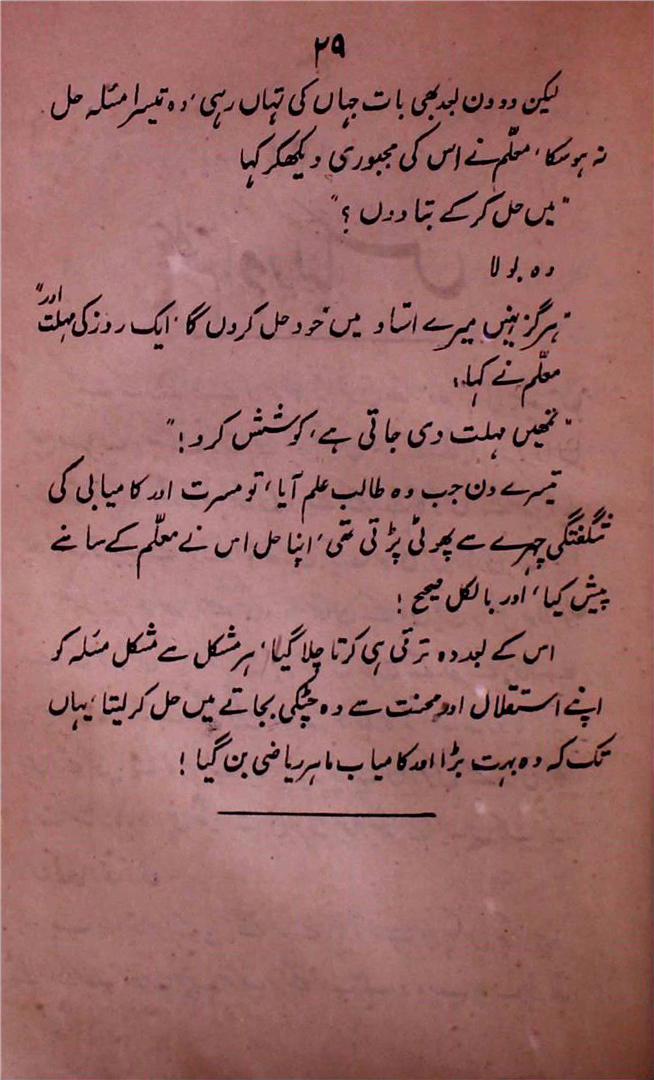 ۲۹
لیکن دو دن بعد بھی بات جہاں کی تہاں رہی، وہ تیسرا مسئلہ حل
نہ ہو سکا، معلّم نے اس کی مجبوری دیکھکر کہا
"میں حل کر کے بتا دوں ؟"
وہ بولا
"ہرگز نہیں میرے استاد میں خود حل کروں گا، ایک روز کی مہلت اور"
معلّم نے کہا،
"تمھیں مہلت دی جاتی ہے، کوشش کرو !"
تیسرے دن جب وہ طالب علم آیا، تو مسرت اور کامیابی کی
شگفتگی چہرے سے پھوٹی پڑتی تھی، اپنا حل اس نے معلّم کے سامنے
پیش کیا، اور بالکل صحیح !
اس کے بعد وہ ترقی ہی کرتا چلا گیا، ہر مشکل سے مشکل مسئلہ کو
اپنے استقلال اور محنت سے وہ چٹکی بجاتے میں حل کر لیتا، یہاں
تک کہ وہ بہت بڑا اور کامیاب ماہر ریاضی بن گیا !